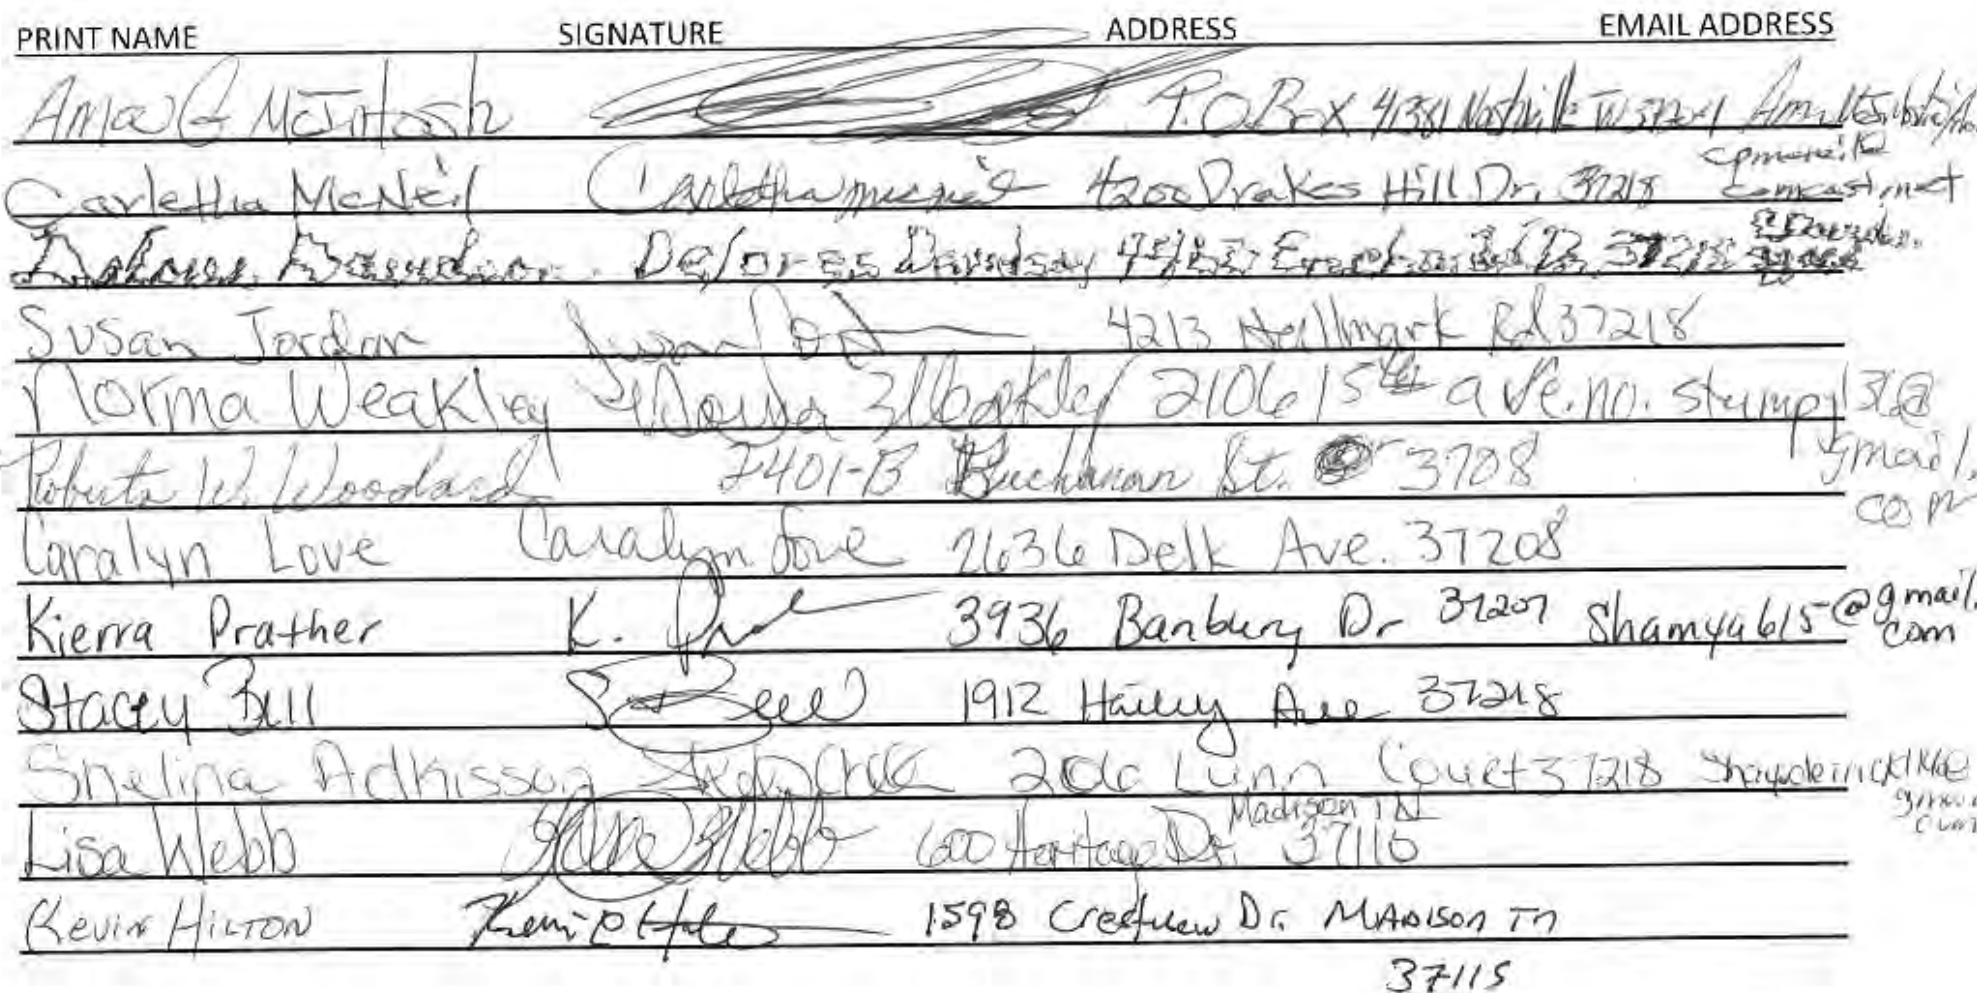 PRINT NAME SIGNATURE ADDRESS EMAIL ADDRESS
McIntosh P.O Box 41381 Nashville TN 37204
cpmcneil@
Carletha McNeil Carletha McNeil 4200 Drakes Hill Dr. 37218 comcast.net
Delores Davidson Delores Davidson 37218
Susan Jordan Susan 4213 Hallmark Rd 37218
Norma Weakley Norma Weakley 2106 15th ave. no. stumpy13@
Roberta W. Woodard 2401-B Buchanan St. 3708 gmail.
com
Caralyn Love Caralyn Love 2636 Delk Ave. 37208
Kierra Prather K. 3936 Banbury Dr 37207 Shamya615@gmail.
com
Stacey Bell S Bell 1912 Hailey Ave 37218
Shelina Adkisson 206 Lunn Court 37218
Madison TN
Lisa Webb Lisa Webb 600 Heritage Dr. 37115
Kevin HILTON 1598 Dr. MADISON Tn
37115